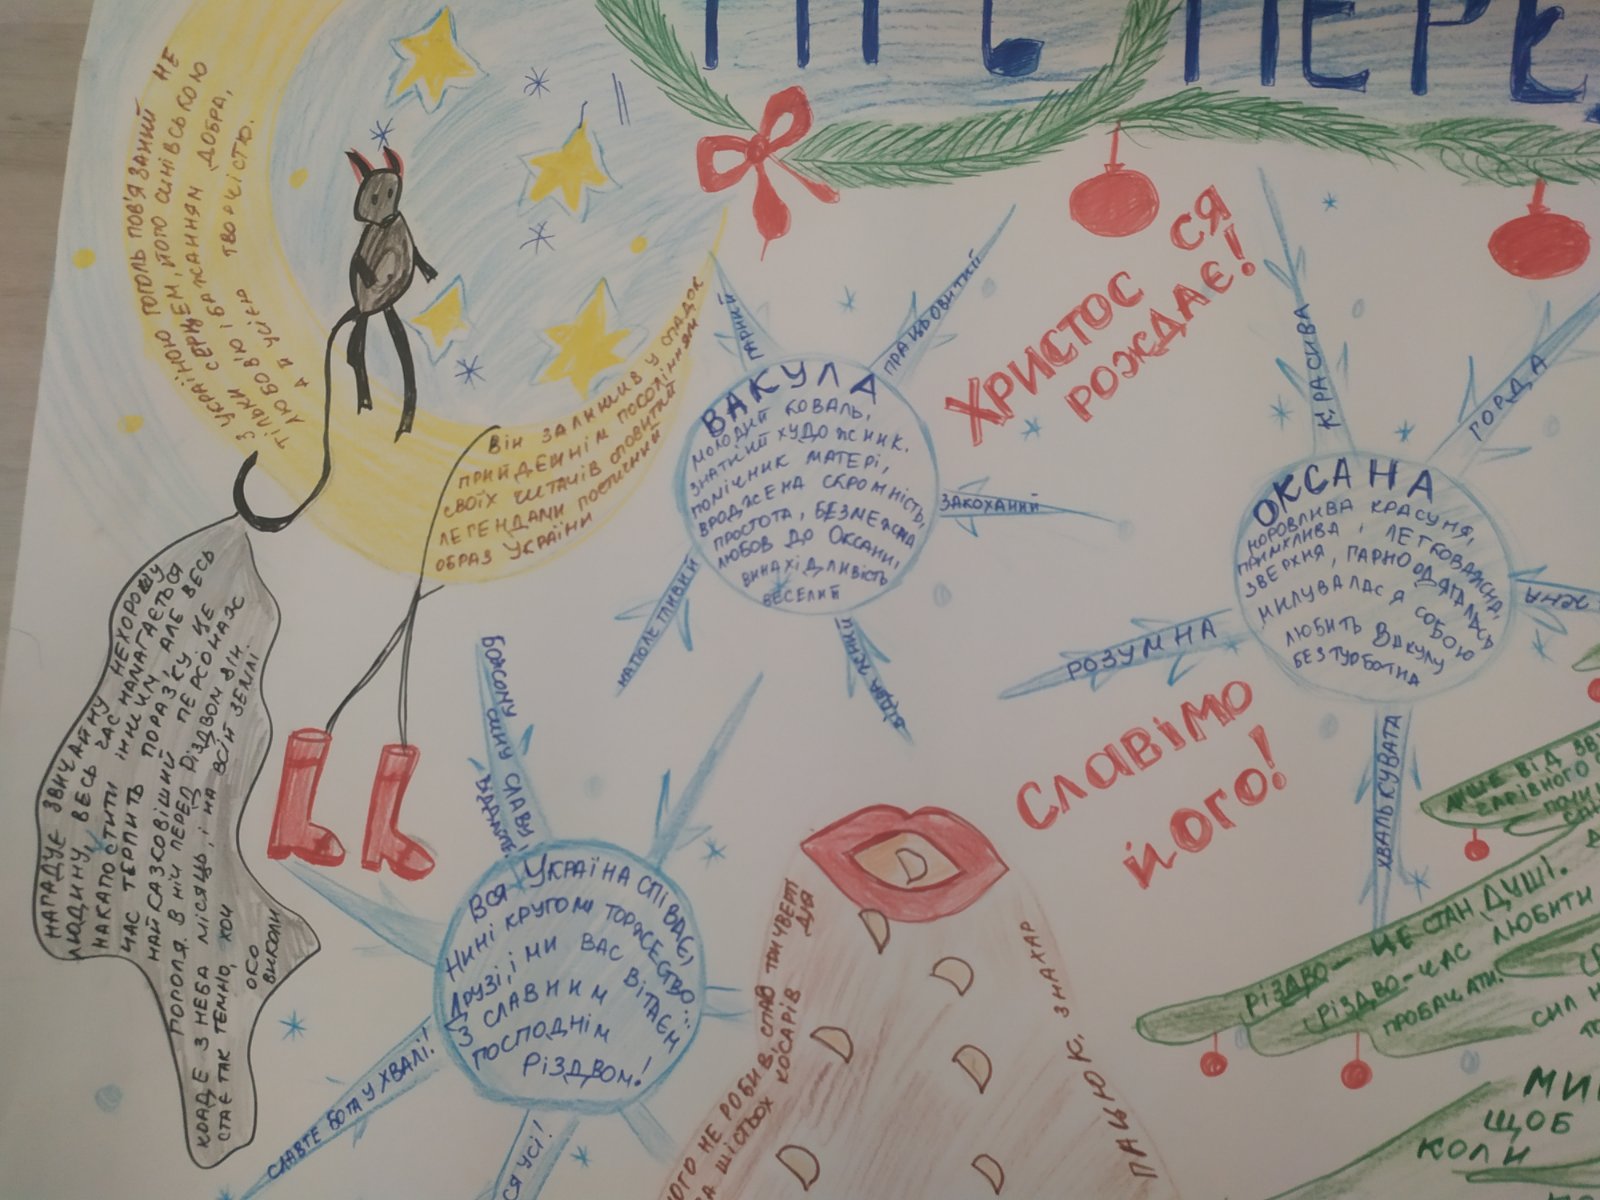 НІЧ ПЕРЕД
З УКРАЇНОЮ ГОГОЛЬ ПОВ'ЯЗАНИЙ НЕ
ТІЛЬКИ СЕРЦЕМ, ЙОГО СИНІВСЬКОЮ
ЛЮБОВ'Ю І БАЖАННЯМ ДОБРА,
А Й УСІЄЮ ТВОРЧІСТЮ.
ВІН ЗАЛИШИВ У СПАДОК
ПРИЙДЕШНІМ ПОКОЛІННЯМ
СВОЇХ ЧИТАЧІВ ОПОВИТИЙ
ЛЕГЕНДАМИ ПОЕТИЧНИЙ
ОБРАЗ УКРАЇНИ
НАГАДУЄ ЗВИЧАЙНУ НЕХОРОШУ
ЛЮДИНУ, ВЕСЬ ЧАС НАМАГАЄТЬСЯ
НАКАПОСТИТИ ІНШИМ, АЛЕ ВЕСЬ
ЧАС ТЕРПИТЬ ПОРАЗКУ. ЦЕ
НАЙКАЗКОВІШИЙ ПЕРСОНАЖ
ГОГОЛЯ. В НІЧ ПЕРЕД РІЗДВОМ ВІН
КРАДЕ З НЕБА МІСЯЦЬ, І НА ВСІЙ ЗЕМЛІ
СТАЄ ТАК ТЕМНО, ХОЧ
ОКО
ВИКОЛИ
ВАКУЛА
МОЛОДИЙ КОВАЛЬ,
ЗНАТНИЙ ХУДОЖНИК,
ПОМІЧНИК МАТЕРІ,
ВРОДЖЕНА СКРОМНІСТЬ,
ПРОСТОТА, БЕЗМЕЖНА
ЛЮБОВ ДО ОКСАНИ,
ВИНАХІДЛИВІСТЬ
ВЕСЕЛИЙ
ГАРНИЙ
ПРАЦЬОВИТИЙ
ЗАКОХАНИЙ
НАПОЛЕГЛИВИЙ
ХРИСТОС
РОЖДАЄ!
СЯ
СЛАВІМО
ЙОГО!
ОКСАНА
НОРОВЛИВА КРАСУНЯ,
ПРИМХЛИВА, ЛЕГКОВАЖНА,
ЗВЕРХНЯ, ГАРНО ОДЯГАЛАСЬ
МИЛУВАЛАСЯ СОБОЮ
ЛЮБИТЬ ВАКУЛУ
БЕЗТУРБОТНА
КРАСИВА
ГОРДА
РОЗУМНА
ХВАЛЬКУВАТА
БОЖОМУ СИНУ СЛАВУ
ВІДДАЙТЕ!
ВСЯ УКРАЇНА СПІВАЄ,
НИНІ КРУГОМ ТОРЖЕСТВО...
ДРУЗІ, І МИ ВАС ВІТАЄМ
З СЛАВНИМ
ГОСПОДНІМ
РІЗДВОМ!
СЛАВТЕ БОГА У ХВАЛІ!
СЯ УСІ!
НЕ РОБИВ, СПАВ ТРИ ЧВЕРТІ
ДНЯ
ЗА ШІСТЬОХ КОСАРІВ
ПАЦЮК. ЗНАХАР
ЛИШЕ ВІД
РІЗДВО - ЦЕ СТАН ДУШІ.
РІЗДВО - ЧАС ЛЮБИТИ
ПРОБАЧАТИ!
СИЛ
МИ
ЩОБ
КОЛИ